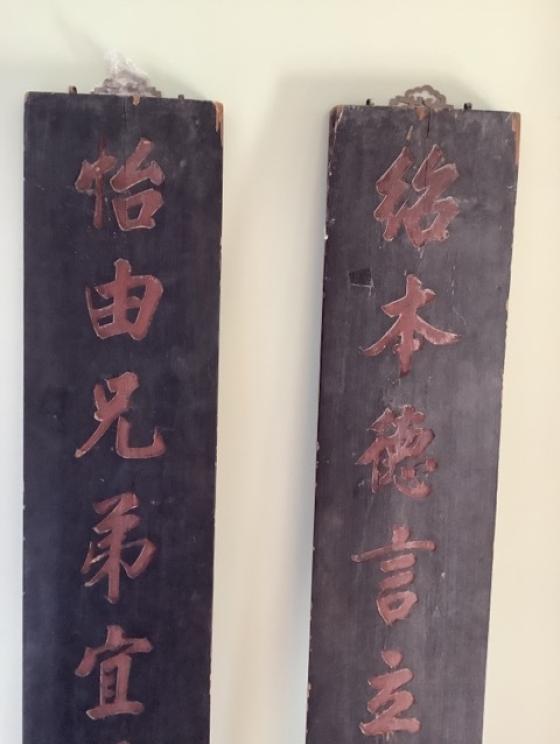 紹本德言立
怡由兄弟宜